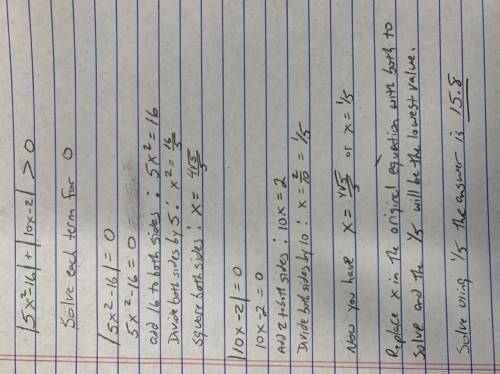 |5x²-16| + |10x-2| > 0
Solve each term for 0
|5x²-16| = 0
5x²-16 = 0
add 16 to both sides : 5x² = 16
Divide both sides by 5 : x² = 16/5
Square both sides : x = 4√5/5
|10x-2| = 0
10x-2 = 0
Add 2 to both sides : 10x = 2
Divide both sides by 10 : x = 2/10 = 1/5
Now you have x = 4√5/5 or x = 1/5
Replace x in the original equation with both to
Solve and the 1/5 will be the lowest value.
Solve using 1/5 the answer is 15.8